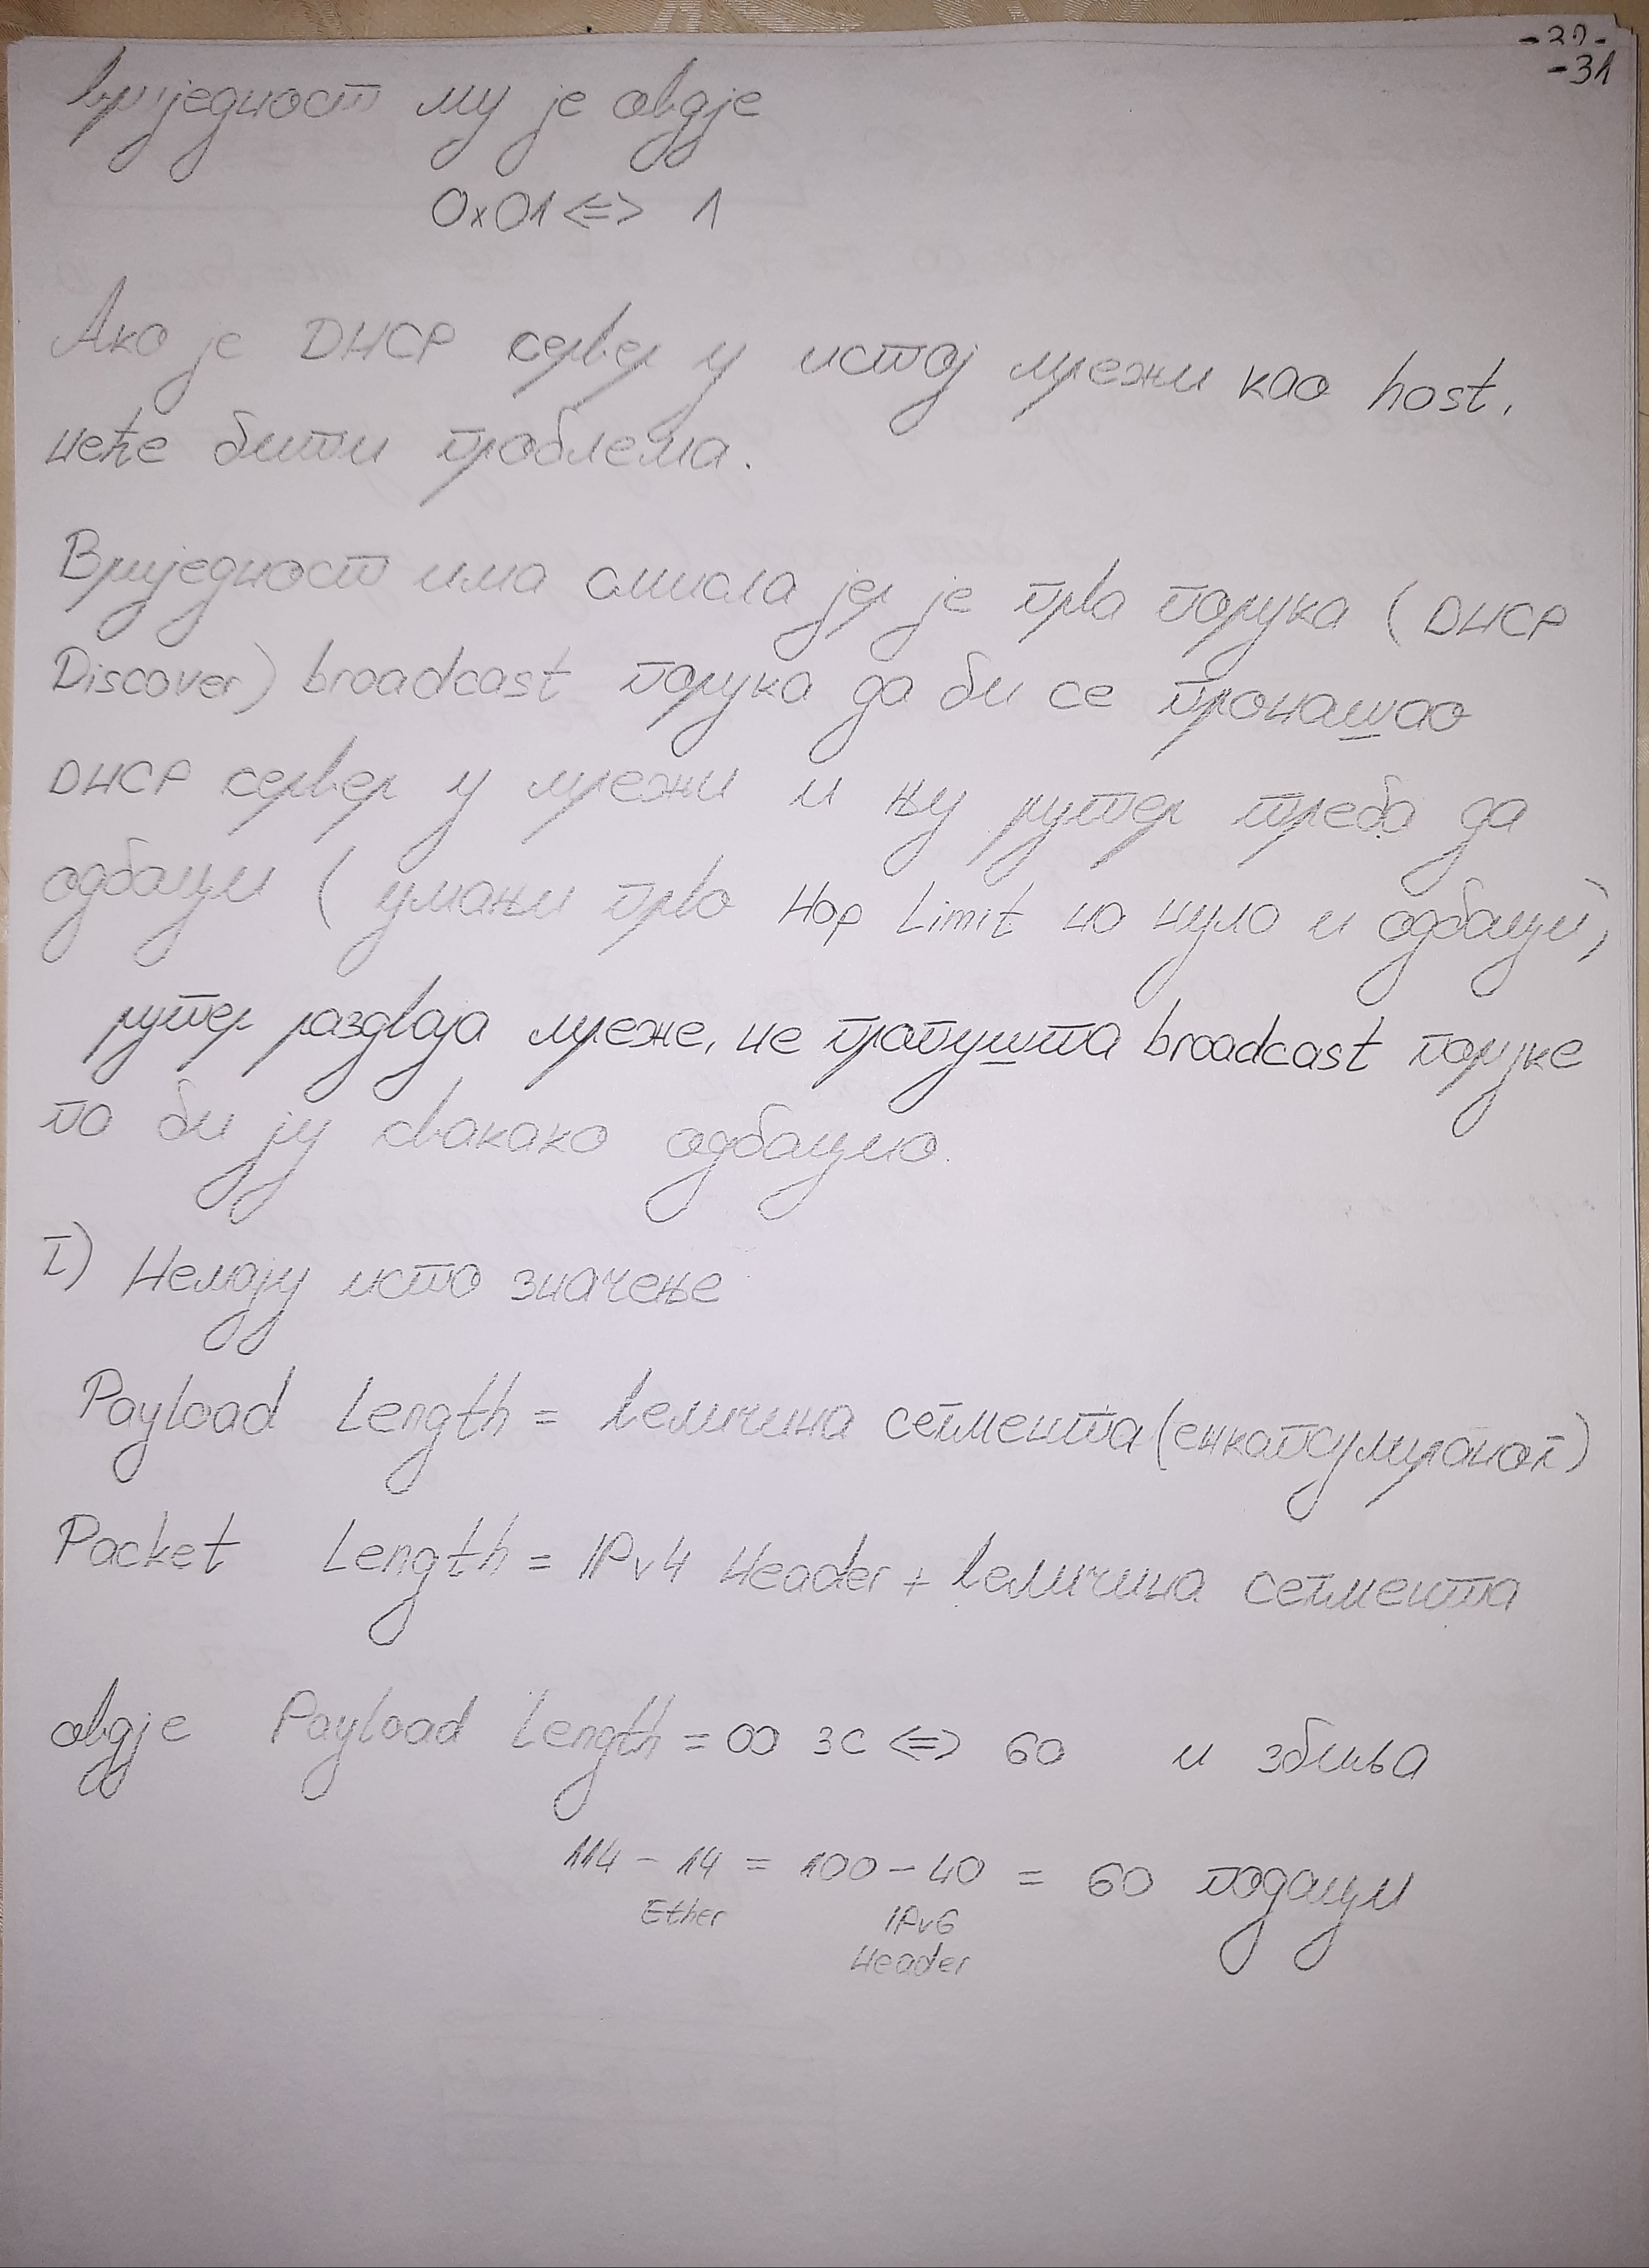 -31
вриједност му је овдје
0x01 <=> 1
Ако је DHCP сервер у истој мрежи као host,
неће бити проблема.
Вриједност има смисла јер је прва порука (DHCP
Discover) broadcast порука да би се пронашао
DHCP сервер у мрежи и њу рутер треба да
одбаци (умањи прво Hop Limit на нула и одбаци),
рутер раздваја мреже, не пропушта broadcast поруке
па би ју свакако одбацио.
I) Немају исто значење
Payload Length = величина сегмента (енкапсулираног)
Packet Length = IPv4 Header + величина сегмента
овдје Payload Length = 00 3C <=> 60 и збиља
114 - 14 = 100 - 40 = 60 подаци
Ether IPv6
Header